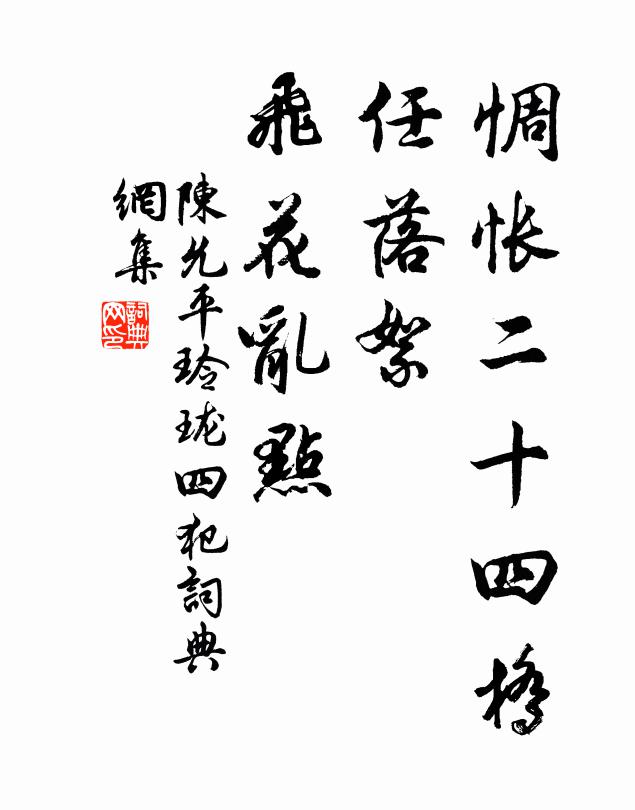 惆怅二十四橋
任落絮
飛花亂點
陳允平玲瓏四犯詞典
網集
詞典
网印